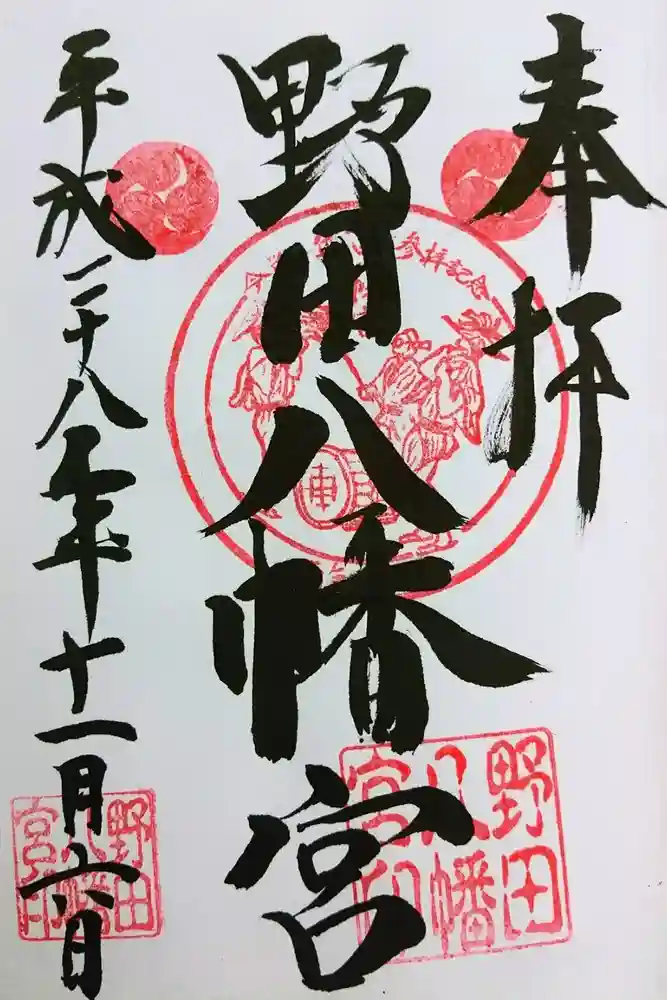 奉拝
参拝記念
野田八幡宮
野田
八幡
宮印
平成二十八年十一月六日
野田
八幡
宮印